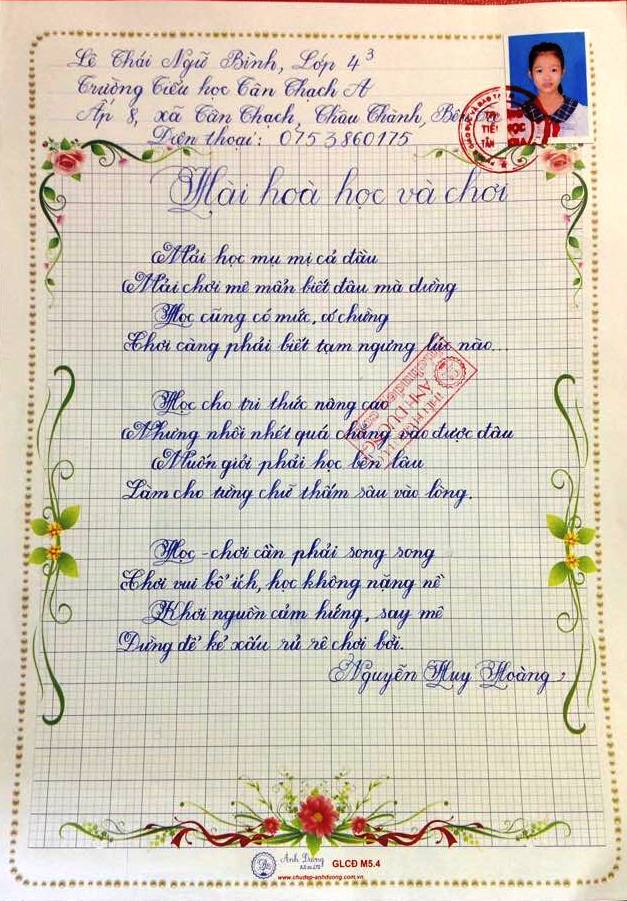 Lê Thái Ngữ Bình, Lớp 4³
Trường Tiểu học Tân Thạch A
Ấp 8, xã Tân Thạch, Châu Thành, Bến
Điện thoại: 0753860175
Hài hoà học và chơi
Mải học mụ mị cả đầu
Mải chơi mê mẩn biết đâu mà dừng
Học cũng có mức, có chừng
Chơi càng phải biết tạm ngưng lúc nào...
Học cho tri thức nâng cao
Nhưng nhồi nhét quá chẳng vào được đâu
Muốn giỏi phải học bền lâu
Làm cho từng chữ thấm sâu vào lòng.
Học - chơi cần phải song song
Chơi vui bổ ích, học không nặng nề
Khơi nguồn cảm hứng, say mê
Đừng để kẻ xấu rủ rê chơi bời.
Nguyễn Huy Hoàng
ÁNH DƯƠNG
Ánh Dương
GLCĐ M5.4
www.chudep-anhduong.com.vn